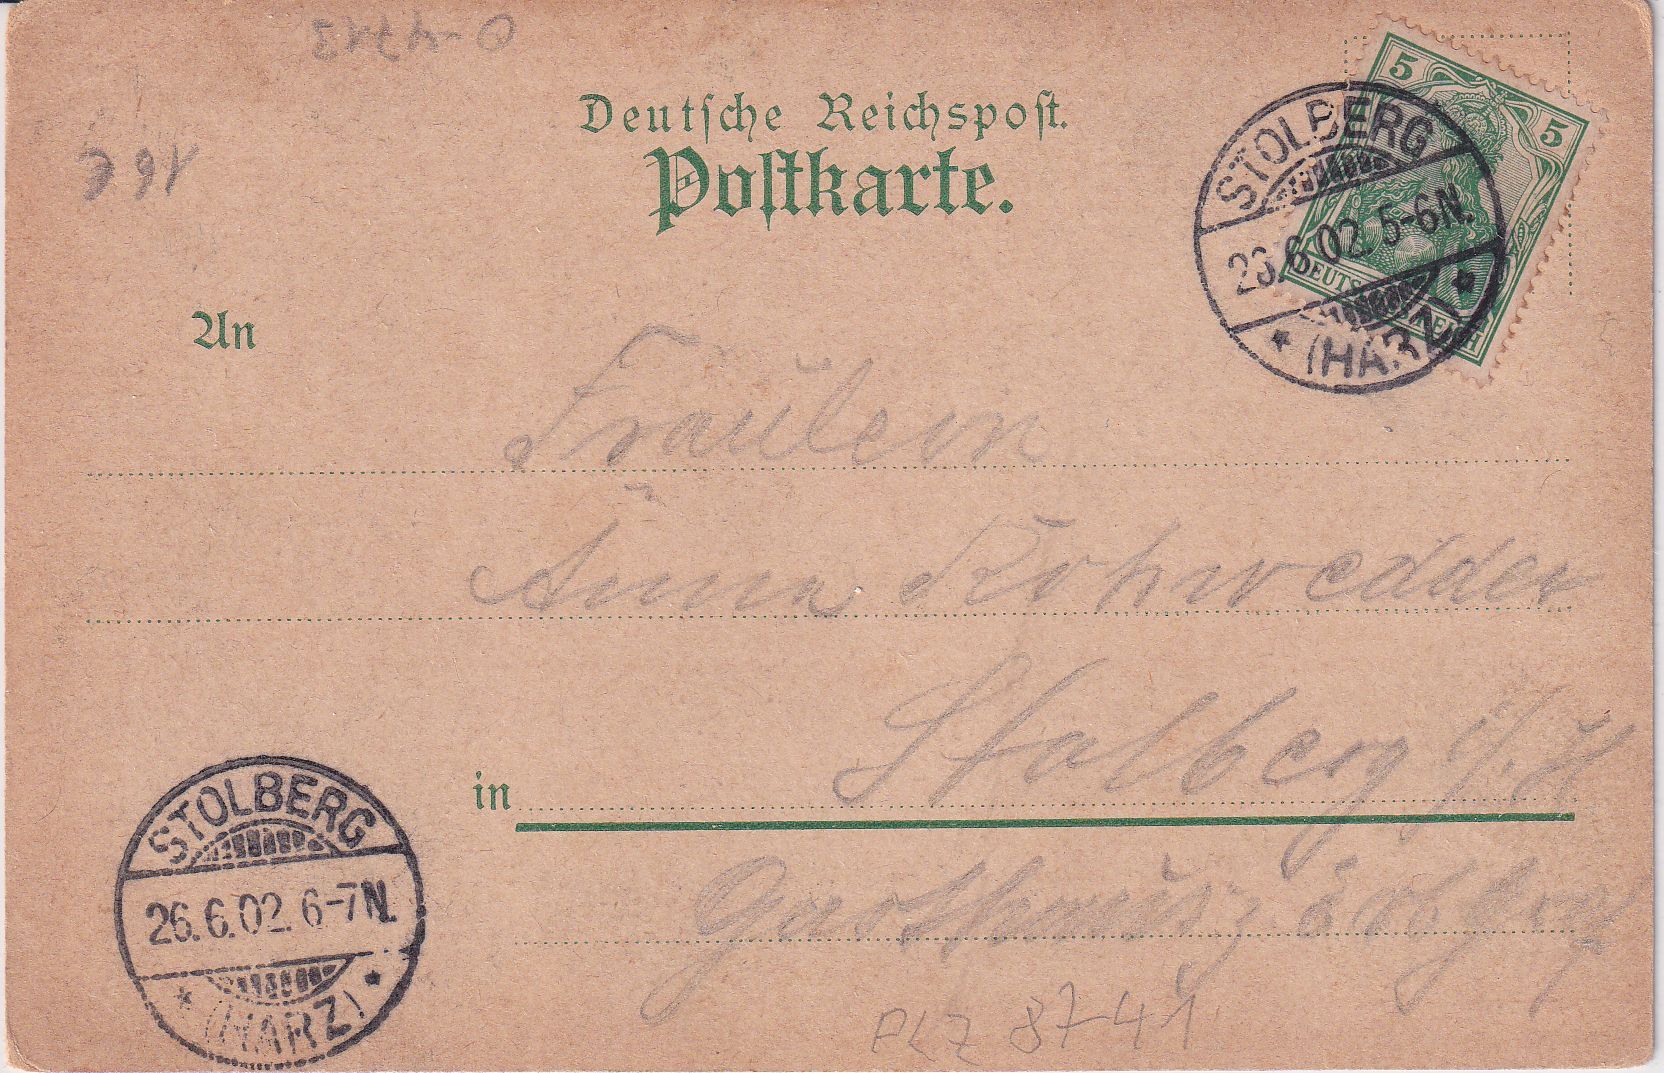 Deutsche Reichspost.
Postkarte.
5
5
DEUTSCHES REICH
STOLBERG
26.6.02. 5-6N.
* (HARZ) *
An
Fräulein
Anna Rohwedder
in Stolberg i/H
Gasthaus z. Erbgraf
STOLBERG
26.6.02. 6-7N.
* (HARZ) *
PLZ 87-41